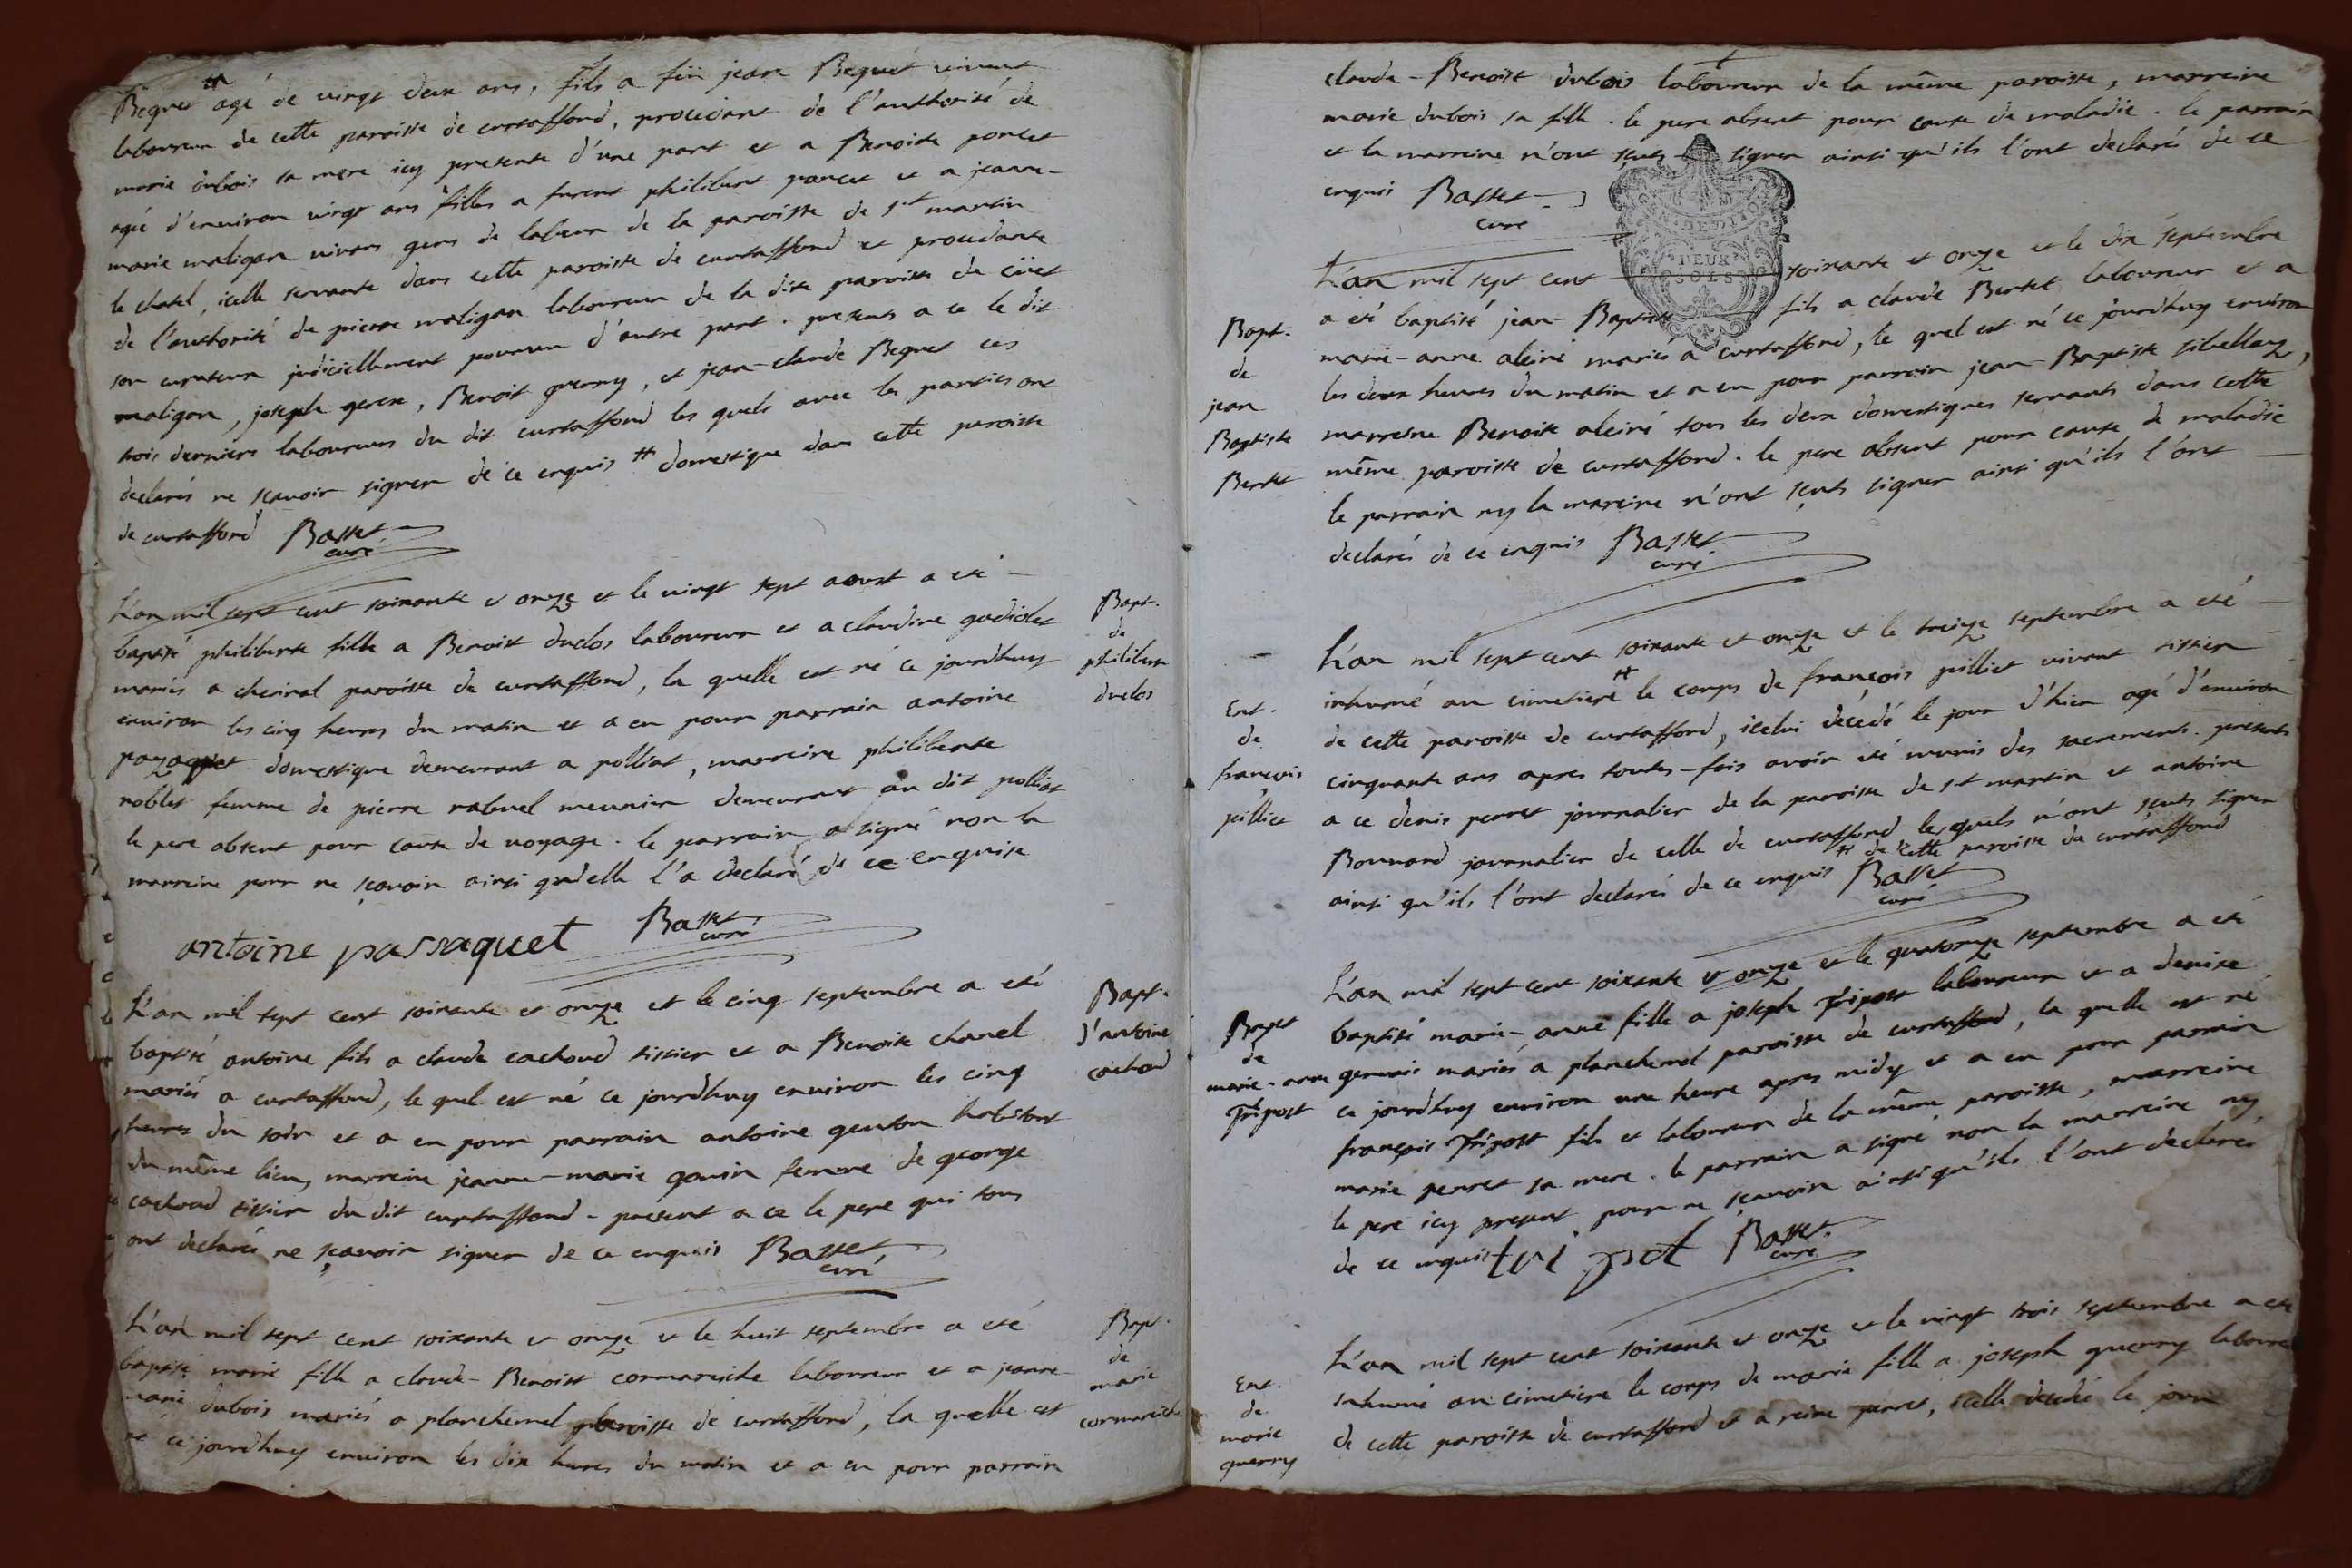 Bequet # agé de vingt deux ans, fils a feü jean Bequet vivant
laboureur de cette paroisse de curtaffond, procedant de l'authorité de
marie dubois sa mere icy presente d'une part et a Benoite poncet
agée d'environ vingt ans filles a furent philibert poncet et a jeanne-
marie maligon vivans gens de labeur de la paroisse de st martin
le chatel, icelle servante dans cette paroisse de curtaffond et procedante
de l'authorité de pierre maligon laboureur de la dite paroisse de cüet
son curateur judiciellement pourvu d'autre part. presents a ce le dit
maligon, joseph, Benoit guerry, et jean-claude Bequet ces
trois derniers laboureurs du dit curtaffond les quels avec les parties ont
declarés ne sçavoir signer de ce enquis # domestique dans cette paroisse
de curtaffond Basset
curé
L'an mil sept cent soixante et onze et le vingt sept aoust a eté
baptisé philiberte fille a Benoist duclos laboureur et a claudine godiolet
mariés a cheiral paroisse de curtaffond, la quelle est né ce jourdhuy
environ les cinq heures du matin et a eu pour parrain antoine
domestique demeurant a polliat, marreine philiberte
roblet femme de pierre rabuel meunier demeurant au dit polliat
le pere absent pour cause de voyage. le parrain a signé non la
marreine pour ne sçavoir ainsi qu'elle l'a declaré de ce enquise
Bapt.
de
philiberte
duclos
antoine passaquet Basset
curé
L'an mil sept cent soixante et onze et le cinq septembre a eté
baptisé antoine fils a claude cachoud tissier et a Benoite chanel
mariés a curtaffond, le quel est né ce jourdhuy environ les cinq
heures du soir et a eu pour parrain antoine genton habitant
du même lieu, marreine jeanne-marie gonin femme de george
cachoud tissier du dit curtaffond. present a ce le pere qui tous
ont declarés ne sçavoir signer de ce enquis Basset
curé
Bapt.
d'antoine
cachoud
L'an mil sept cent soixante et onze et le huit septembre a eté
baptisé marie fille a claude-Benoist cormareiche laboureur et a jeanne
marie dubois mariés a planchemel paroisse de curtaffond, la quelle est
né ce jourdhuy environ les dix heures du matin et a eu pour parrain
Bapt.
de
marie
cormareiche
claude-Benoist dubois laboureur de la même paroisse, marreine
marie dubois sa fille. le pere absent pour cause de maladie. le parrain
et la marreine n'ont sçuts signer ainsi qu'ils l'ont declarés de ce
enquis Basset
curé
DEUX
SOLS
L'an mil sept cent soixante et onze et le dix septembre
a eté baptisé jean-Baptiste fils a claude Bertet laboureur et a
marie-anne aleiné mariés a curtaffond, le quel est né ce jourdhuy environ
les deux heures du matin et a eu pour parrain jean-Baptiste sibellaz,
marreine Benoite aleiné tous les deux domestiques servants dans cette
même paroisse de curtaffond. le pere absent pour cause de maladie
le parrain ny la mareine n'ont sçuts signer ainsi qu'ils l'ont
declarés de ce enquis Basset
curé
Bapt.
de
jean
Baptiste
Bertet
L'an mil sept cent soixante et onze et le treize septembre a eté
inhumé au cimetiere # le corps de françois pilliet vivant tissier
de cette paroisse de curtaffond, icelui decedé le jour d'hier agé d'environ
cinquante ans apres toutes-fois avoir eté munis des sacrements. presents
a ce denis perret journalier de la paroisse de st martin et antoine
Bouvard journalier de celle de curtaffond lesquels n'ont sçuts signer
ainsi qu'ils l'ont declarés de ce enquis # de cette paroisse de curtaffond
Basset
curé
Ent.
de
françois
pilliet
L'an mil sept cent soixante et onze et le quatorze septembre a eté
baptisé marie-anne fille a joseph Tripost laboureur et a denise
gervais mariés a planchemel paroisse de curtaffond, la quelle est né
ce jourdhuy environ une heure apres midy et a eu pour parrain
françois Tripost fils et laboureur de la même paroisse, marreine
marie perret sa mere. le parrain a signé non la marreine ny
le pere icy present pour ne sçavoir ainsi qu'ils l'ont declarés
de ce enquis tripot Basset
curé
Bapt
de
marie-anne
Tripost
L'an mil sept cent soixante et onze et le vingt trois septembre a eté
inhumé au cimetiere le corps de marie fille a joseph guerry laboureur
de cette paroisse de curtaffond et a reine perret, icelle decedé le jour
Ent.
de
marie
guerry